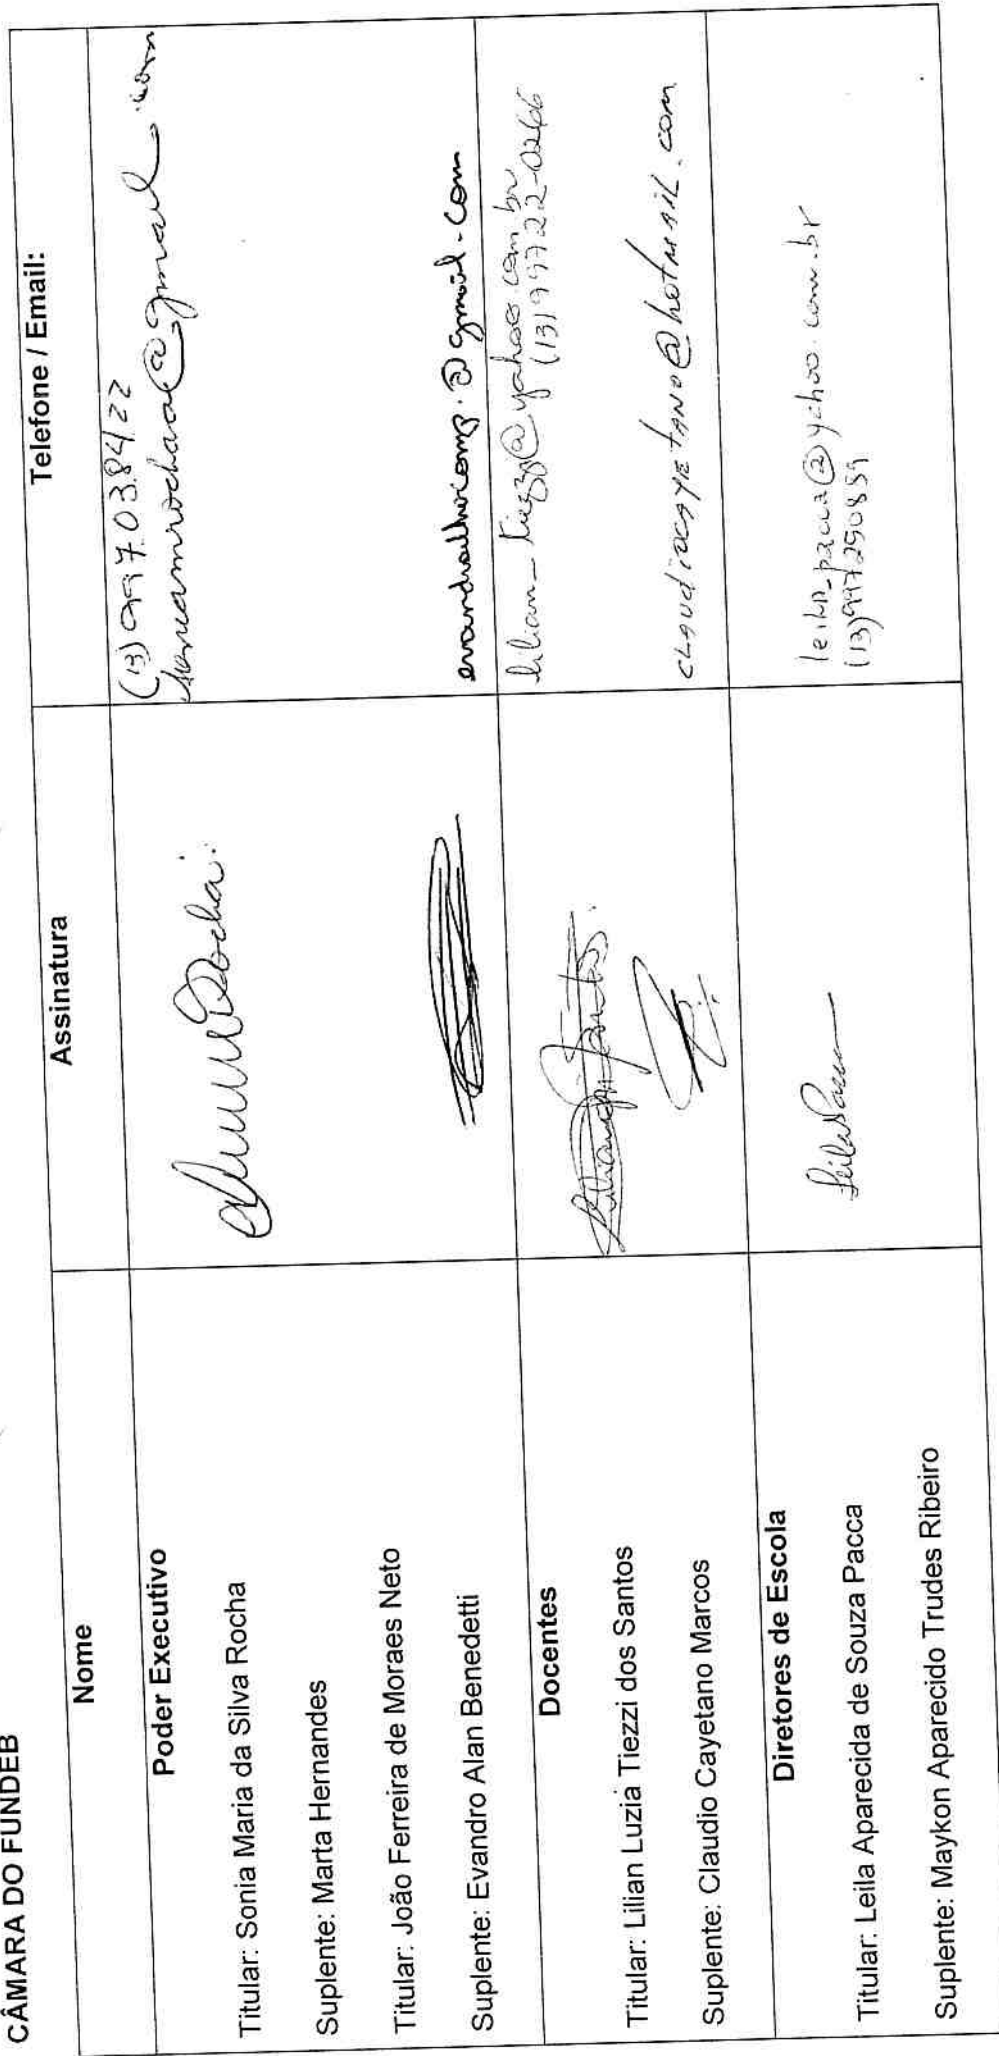 CÂMARA DO FUNDEB
Nome
Assinatura
Telefone / Email:
Poder Executivo
Titular: Sonia Maria da Silva Rocha
(13) 997038422
Suplente: Marta Hernandes
Titular: João Ferreira de Moraes Neto
Suplente: Evandro Alan Benedetti
Docentes
Titular: Lilian Luzia Tiezzi dos Santos
(13) 99722-0266
Suplente: Claudio Cayetano Marcos
claudiocayetano@hotmail.com
Diretores de Escola
Titular: Leila Aparecida de Souza Pacca
leila_pacca@yahoo.com.br
(13) 997250859
Suplente: Maykon Aparecido Trudes Ribeiro